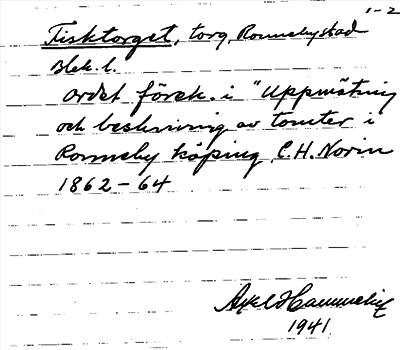 1-2
Fisktorget, torg, Ronneby stad
Blek. l.
Ordet förek. i "Uppmätning
och beskrivning av tomter i
Ronneby köping C.H. Norin
1862-64
Axel
1941